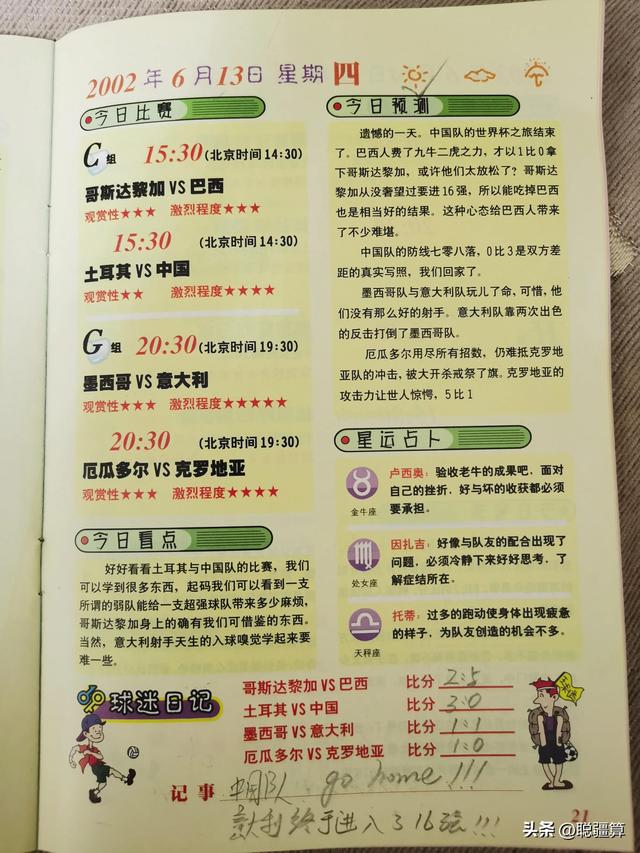 2002年6月13日 星期四
今日比赛
C组 15:30(北京时间14:30)
哥斯达黎加 VS 巴西
观赏性★★★ 激烈程度★★★★
15:30 (北京时间14:30)
土耳其 VS 中国
观赏性★★ 激烈程度★★★★
G组 20:30(北京时间19:30)
墨西哥 VS 意大利
观赏性★★★ 激烈程度★★★★★
20:30 (北京时间19:30)
厄瓜多尔 VS 克罗地亚
观赏性★★★ 激烈程度★★★★
今日看点
好好看看土耳其与中国队的比赛，我们
可以学到很多东西，起码我们可以看到一支
所谓的弱队能给一支超强球队带来多少麻烦，
哥斯达黎加身上的确有我们可借鉴的东西。
当然，意大利射手天生的入球嗅觉学起来要
难一些。
今日预测
遗憾的一天。中国队的世界杯之旅结束
了。巴西人费了九牛二虎之力，才以1比0拿
下哥斯达黎加，或许他们太放松了？哥斯达
黎加从没奢望过要进16强，所以能吃掉巴西
也是相当好的结果。这种心态给巴西人带来
了不少难堪。
中国队的防线七零八落，0比3是双方差
距的真实写照，我们回家了。
墨西哥队与意大利队玩儿了命，可惜，他
们没有那么好的射手。意大利队靠两次出色
的反击打倒了墨西哥队。
厄瓜多尔用尽所有招数，仍难抵克罗地
亚队的冲击，被大开杀戒祭了旗。克罗地亚的
攻击力让世人惊愕，5比1
星运占卜
金牛座
卢西奥：验收老牛的成果吧，面对
自己的挫折，好与坏的收获都必须
要承担。
处女座
因扎吉：好像与队友的配合出现了
问题，必须冷静下来好好思考，了
解症结所在。
天秤座
托蒂：过多的跑动使身体出现疲惫
的样子，为队友创造的机会不多。
球迷日记
哥斯达黎加 VS 巴西 比分 2:5
土耳其 VS 中国 比分 3:0
墨西哥 VS 意大利 比分 1:1
厄瓜多尔 VS 克罗地亚 比分 1:0
记事 中国队 go home!!!
意大利终于进入了16强!!!
21
头条 @聪疆算